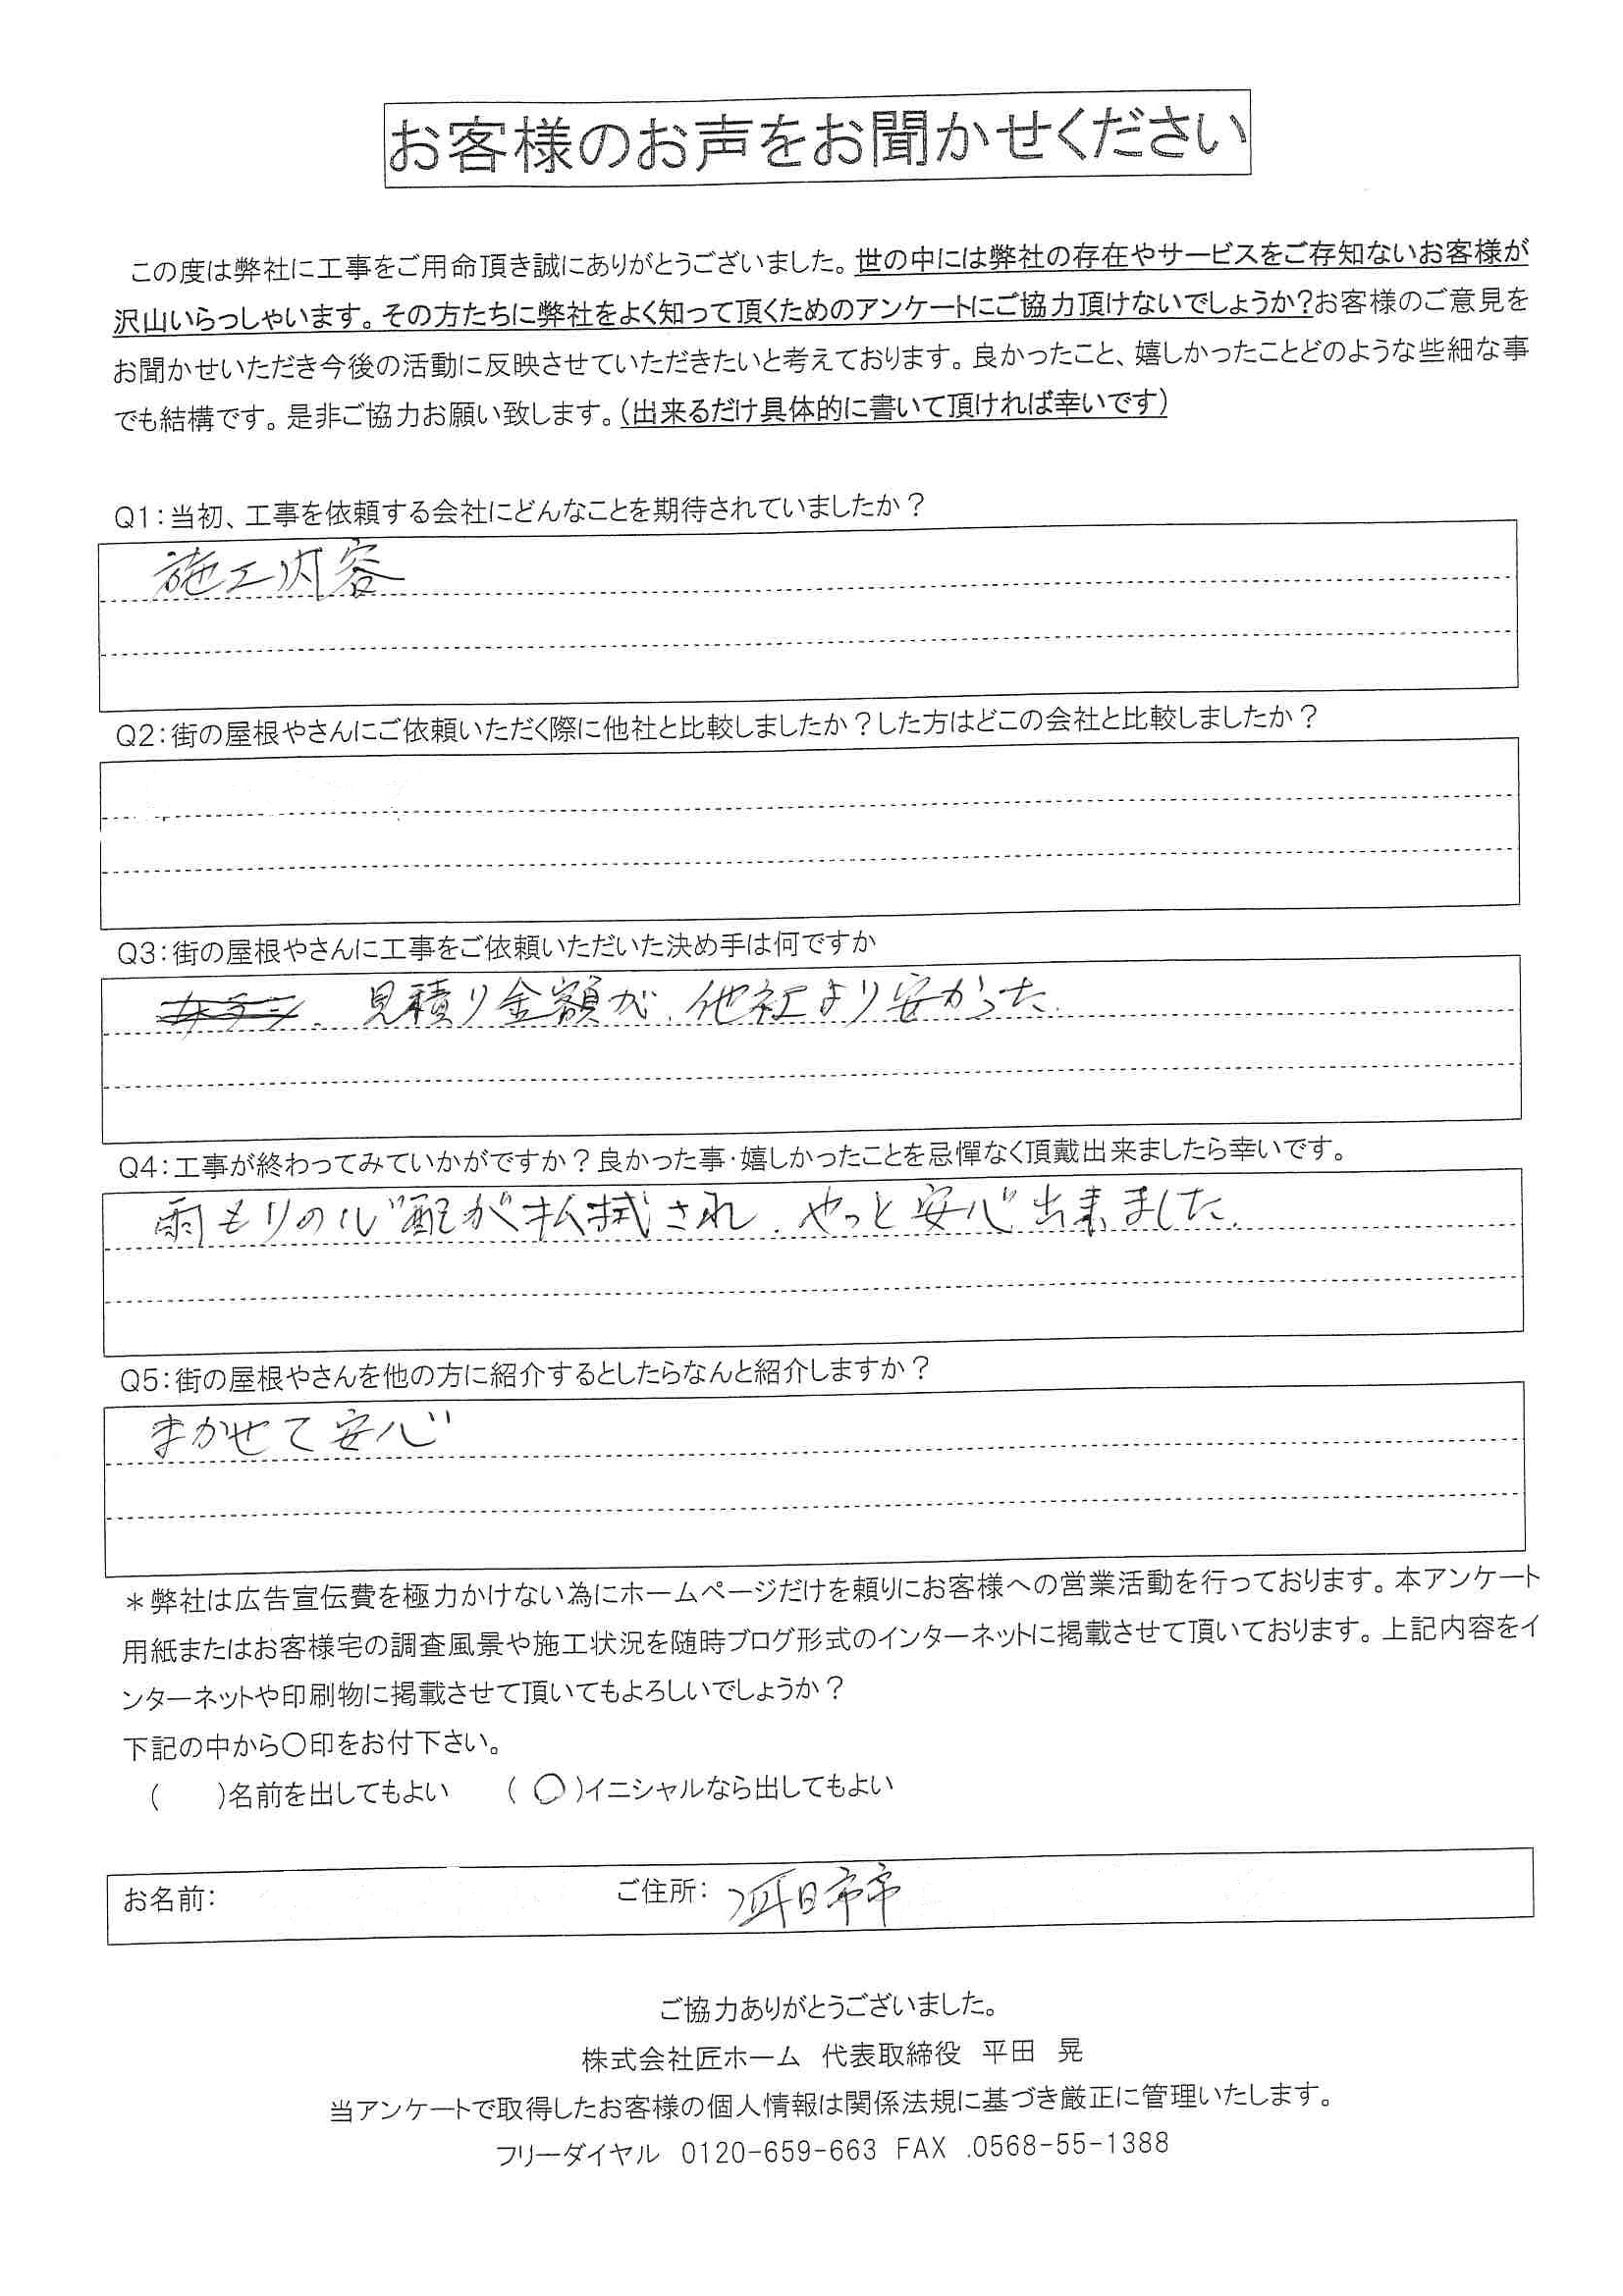 お客様のお声をお聞かせください
この度は弊社に工事をご用命頂き誠にありがとうございました。世の中には弊社の存在やサービスをご存知ないお客様が
沢山いらっしゃいます。その方たちに弊社をよく知って頂くためのアンケートにご協力頂けないでしょうか?お客様のご意見を
お聞かせいただき今後の活動に反映させていただきたいと考えております。良かったこと、嬉しかったことどのような些細な事
でも結構です。是非ご協力お願い致します。(出来るだけ具体的に書いて頂ければ幸いです)
Q1:当初、工事を依頼する会社にどんなことを期待されていましたか?
施工内容
Q2:街の屋根やさんにご依頼いただく際に他社と比較しましたか?した方はどこの会社と比較しましたか?
Q3:街の屋根やさんに工事をご依頼いただいた決め手は何ですか
見積り金額が、他社より安かった。
Q4:工事が終わってみていかがですか?良かった事・嬉しかったことを忌憚なく頂戴出来ましたら幸いです。
雨もりの心配が払拭され、やっと安心出来ました。
Q5:街の屋根やさんを他の方に紹介するとしたらなんと紹介しますか?
まかせて安心
*弊社は広告宣伝費を極力かけない為にホームページだけを頼りにお客様への営業活動を行っております。本アンケート
用紙またはお客様宅の調査風景や施工状況を随時ブログ形式のインターネットに掲載させて頂いております。上記内容をイ
ンターネットや印刷物に掲載させて頂いてもよろしいでしょうか?
下記の中から〇印をお付下さい。
(　　)名前を出してもよい　(〇)イニシャルなら出してもよい
お名前:　ご住所:　四日市市
ご協力ありがとうございました。
株式会社匠ホーム 代表取締役 平田 晃
当アンケートで取得したお客様の個人情報は関係法規に基づき厳正に管理いたします。
フリーダイヤル 0120-659-663 FAX .0568-55-1388